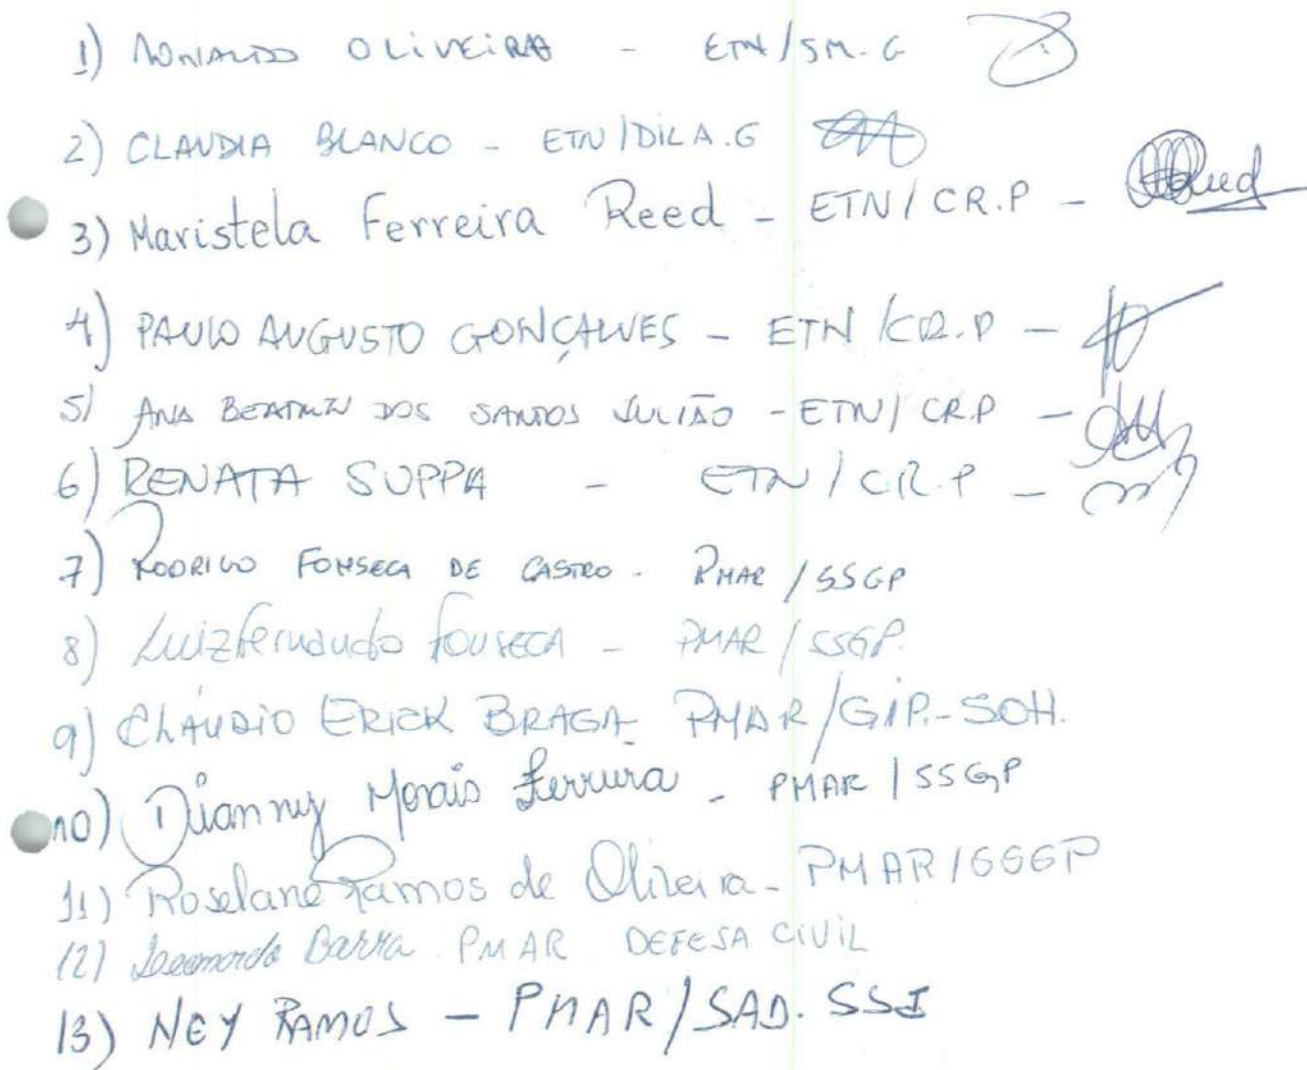 1) RONALDO OLIVEIRA - ETN/SM.G
2) CLAUDIA BLANCO - ETN/DILA.G
3) Maristela Ferreira Reed - ETN/CR.P - Reed
4) PAULO AUGUSTO GONÇALVES - ETN/CR.P -
5) ANA BEATRIZ DOS SANTOS JULIÃO - ETN/CR.P -
6) RENATA SUPPA - ETN/CR.P -
7) RODRIGO FONSECA DE CASTRO - PMAR/SSGP
8) Luiz fernando fonseca - PMAR/SSGP.
9) CLÁUDIO ERICK BRAGA - PMAR/GIP.-SOH.
10) Dianny Morais Ferreira - PMAR/SSGP
11) Roselane Ramos de Oliveira - PMAR/SSGP
12) Leonardo Barra PMAR DEFESA CIVIL
13) NEY RAMOS - PMAR/SAD.SSI